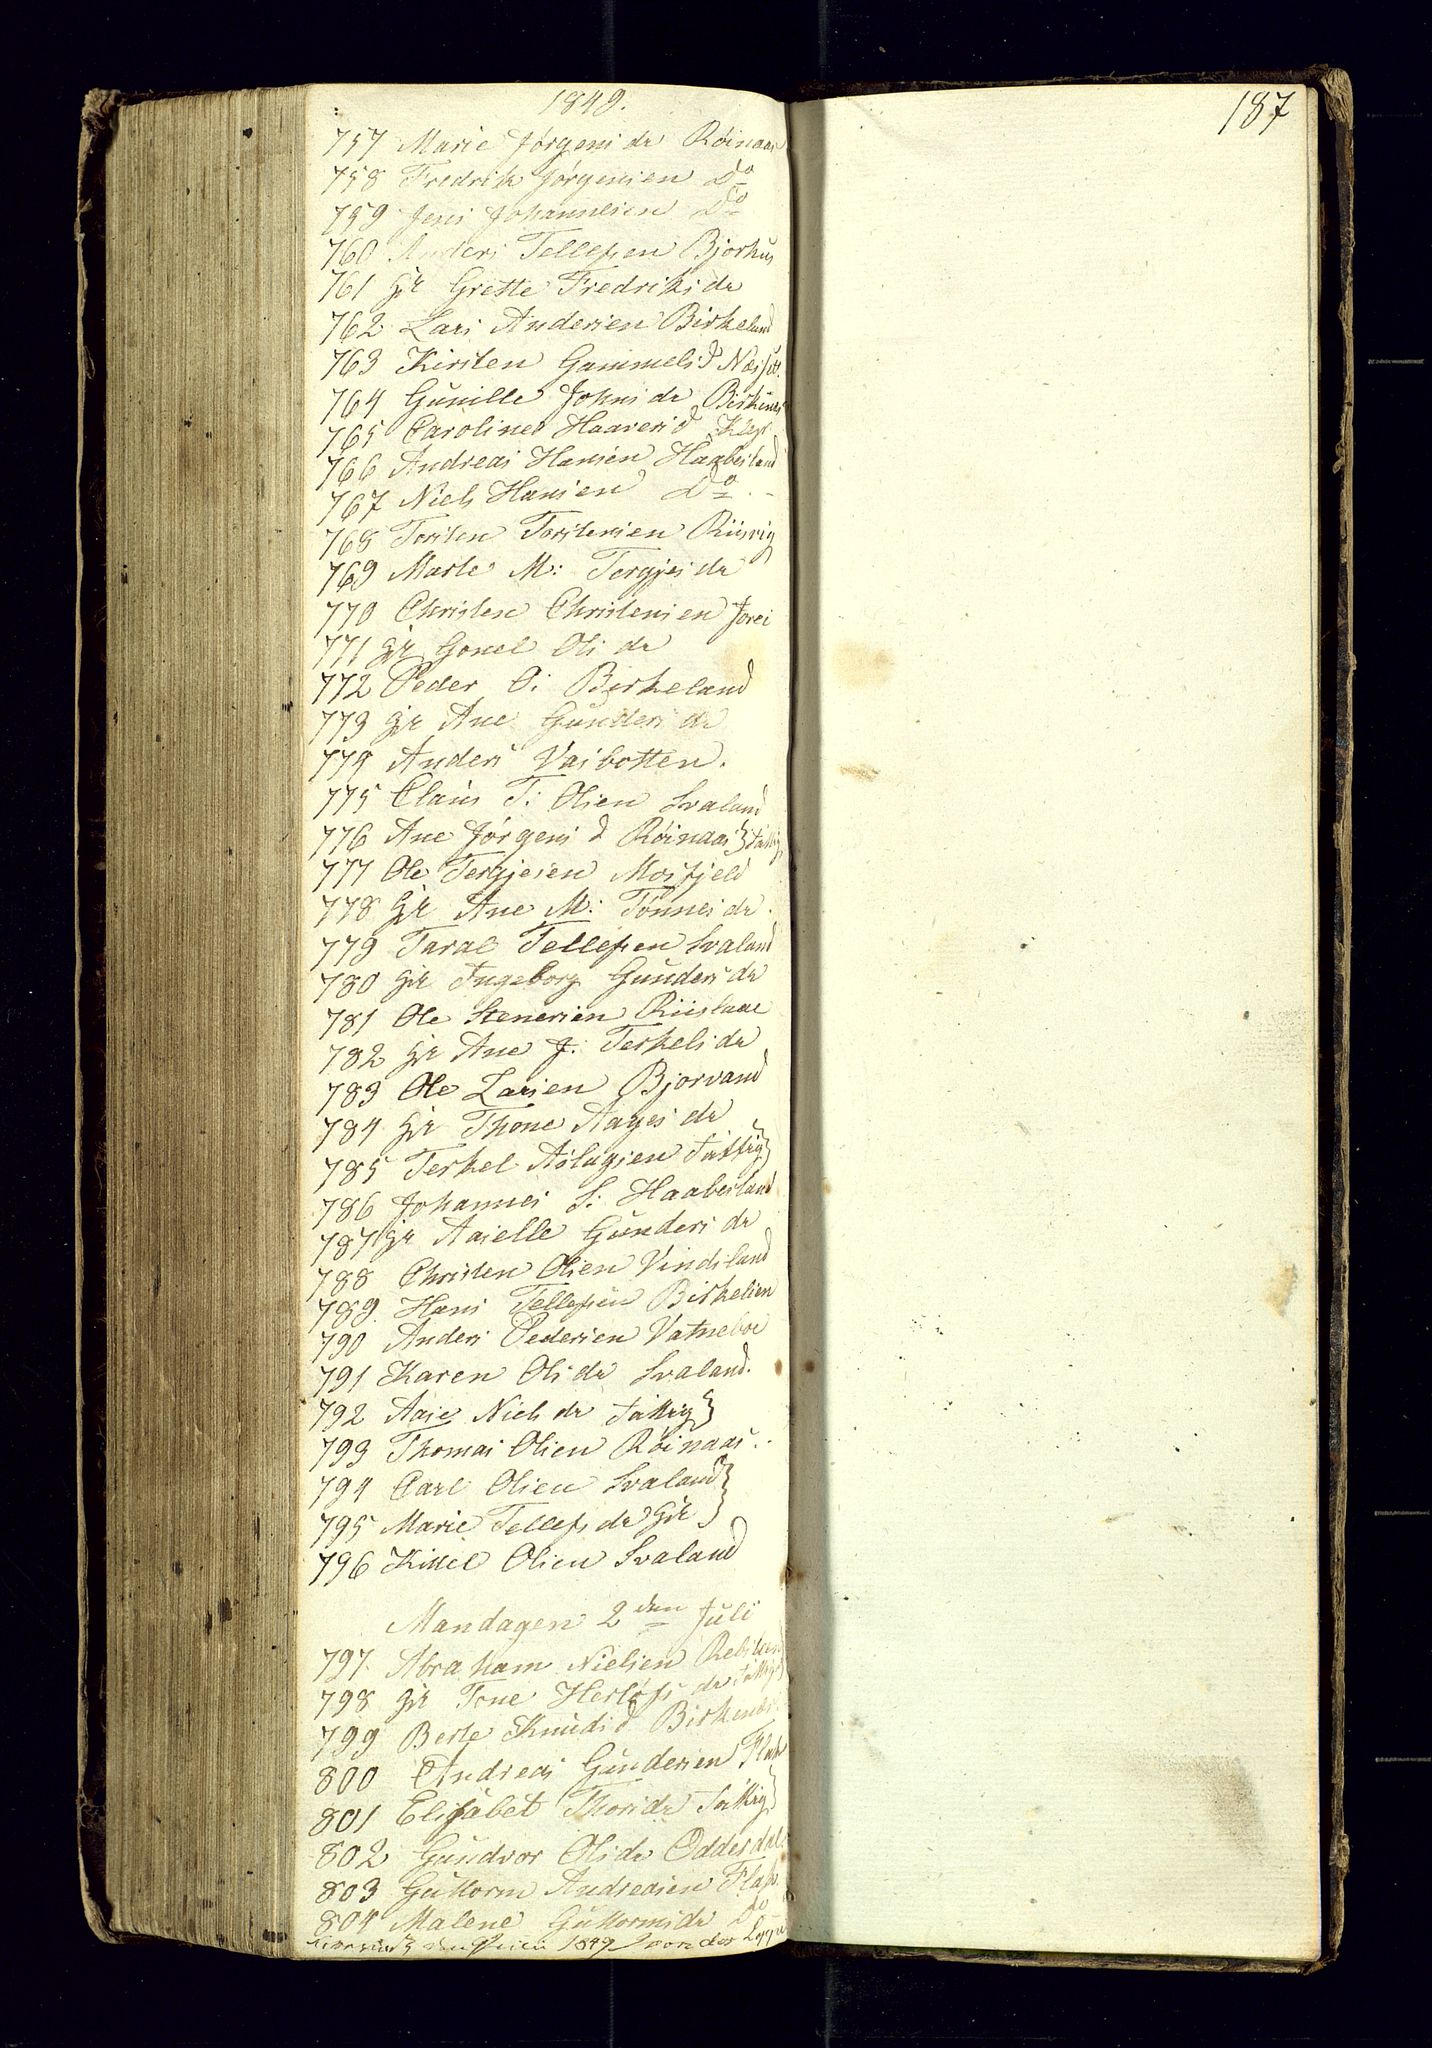 1849.
187
757 Marie Jørgensdr Røinaas
758 Fredrik Jørgensen Do
759 Jens Johannesen Do
760 Anders Tellefsen Bjorhus
761 Gr Grette Fredriksdr
762 Lars Andersen Birkeland
763 Kirsten Gammelsd
764 Gunille Johnsdr Birkenes
765 Caroline Haaversd Klep
766 Andreas Hansen Haabesland
767 Niels Hansen Do
768 Torsten Torstensen Riisvig
769 Marte M: Tergjesdr
770 Christen Christensen
771 Gr Gonel Olsdr
772 Peder O: Birkeland
773 Gr Ane Gundersdr
774 Anders Vasbotten.
775 Claus T: Olsen Svaland
776 Ane Jørgensd Røinaas} fattig
777 Ole Tergjesen Mosfjeld
778 Gr Ane M: Tønnesdr.
779 Taral Tellefsen Svaland
780 Gr Ingeborg Gundersdr
781 Ole Stenersen Riislaae
782 Gr Ane J: Terkelsdr
783 Ole Larsen Bjorvand
784 Gr Thone Aagesdr
785 Terkel Aslagsen fattig}
786 Johannes S: Haabesland
787 Gr Aasille Gundersdr
788 Christen Olsen Vindsland
789. Hans Tellefsen Birkelien
790 Anders Pedersen Vatneboe
791 Karen Olsdr Svaland.
792 Aase Nielsdr fattig}
793 Thomas Olsen Røinaas
794 Carl Olsen Svaland}
795 Marie Tellefsdr Gr }
796 Kittel Olsen Svaland
Mandagen 2den Juli
797. Abraham Nielsen
798 Gr Tone Herløfsdr fattig
799 Berte Knudsd Birkenes
800 Andreas Gundersen Flak
801 Elisabet Thorsdr fattig}
802 Gundvor Olsdr Oddersdal
803 Guttorm Andreasen Flak
804 Malene Guttormsdr Do
1849